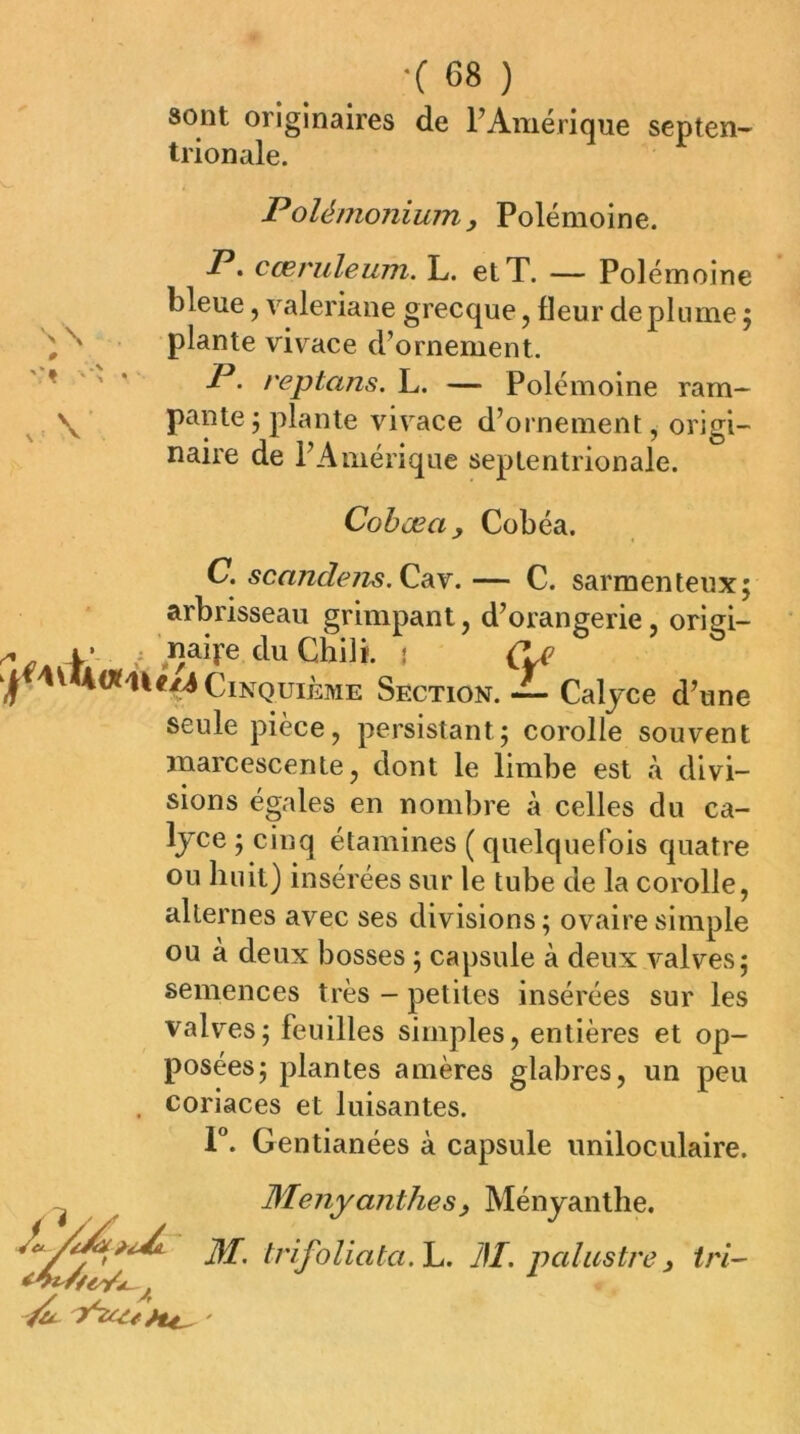 ( 68 )
sont originaires de l'Amérique septen-
trionale.
Polémonium, Polémoine.
P. cœruleum. L. et T. — Polémoine
bleue, valeriane grecque, fleur de plume;
plante vivace d'ornement.
P. reptans. L. — Polémoine ram-
pante; plante vivace d'ornement, origi-
naire de l'Amérique septentrionale.
Cobœa, Cobéa.
C. scandens. Cav. — C. sarmenteux;
arbrisseau grimpant, d'orangerie, origi-
naire du Chili.
Cinquième Section. — Calyce d'une
seule pièce, persistant; corolle souvent
marcescente, dont le limbe est à divi-
sions égales en nombre à celles du ca-
lyce; cinq étamines (quelquefois quatre
ou huit) insérées sur le tube de la corolle,
alternes avec ses divisions; ovaire simple
ou à deux bosses; capsule à deux valves;
semences très-petites insérées sur les
valves; feuilles simples, entières et op-
posées; plantes amères glabres, un peu
coriaces et luisantes.
1°. Gentianées à capsule uniloculaire.
Menyanthes, Ményanthe.
M. trifoliata. L. M. palustre, tri-